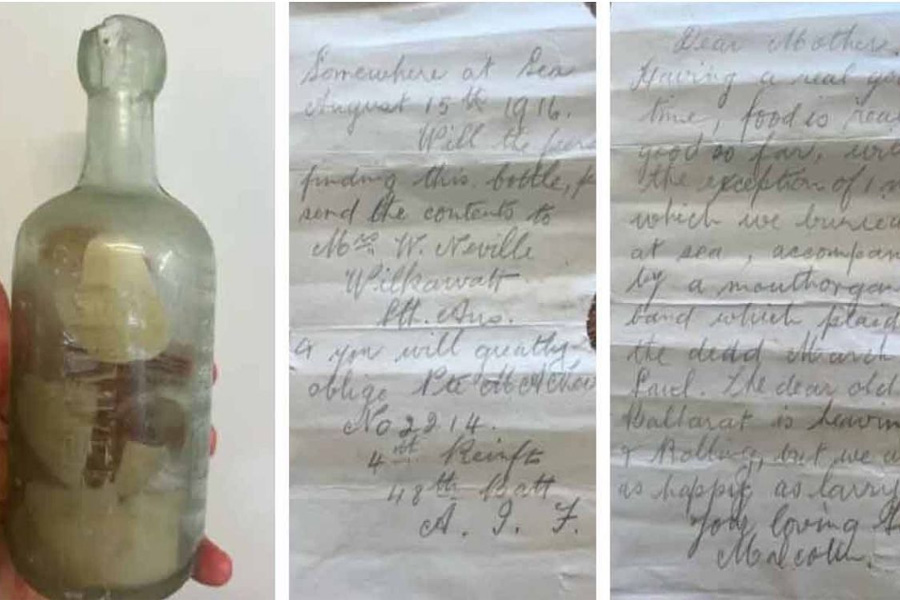 Somewhere at Sea
August 15th 1916.
Will the pers
finding this bottle, p
send the contents to
Mrs W. Neville
Wilkawatt
Sth. Aus.
& you will greatly
oblige Pte M A
No 2214.
4th Reinfts
48th Batt
A. I. F.
Dear Mother,
Having a real go
time, food is real
good so far, with
the exception of 1 m
which we buried
at sea, accompan
by a mouthorgan
band which plaid
the dedd March
Saul. The dear old
Ballarat is heavin
& Rolling, but we a
as happy as larry
Your loving
Malcolm.